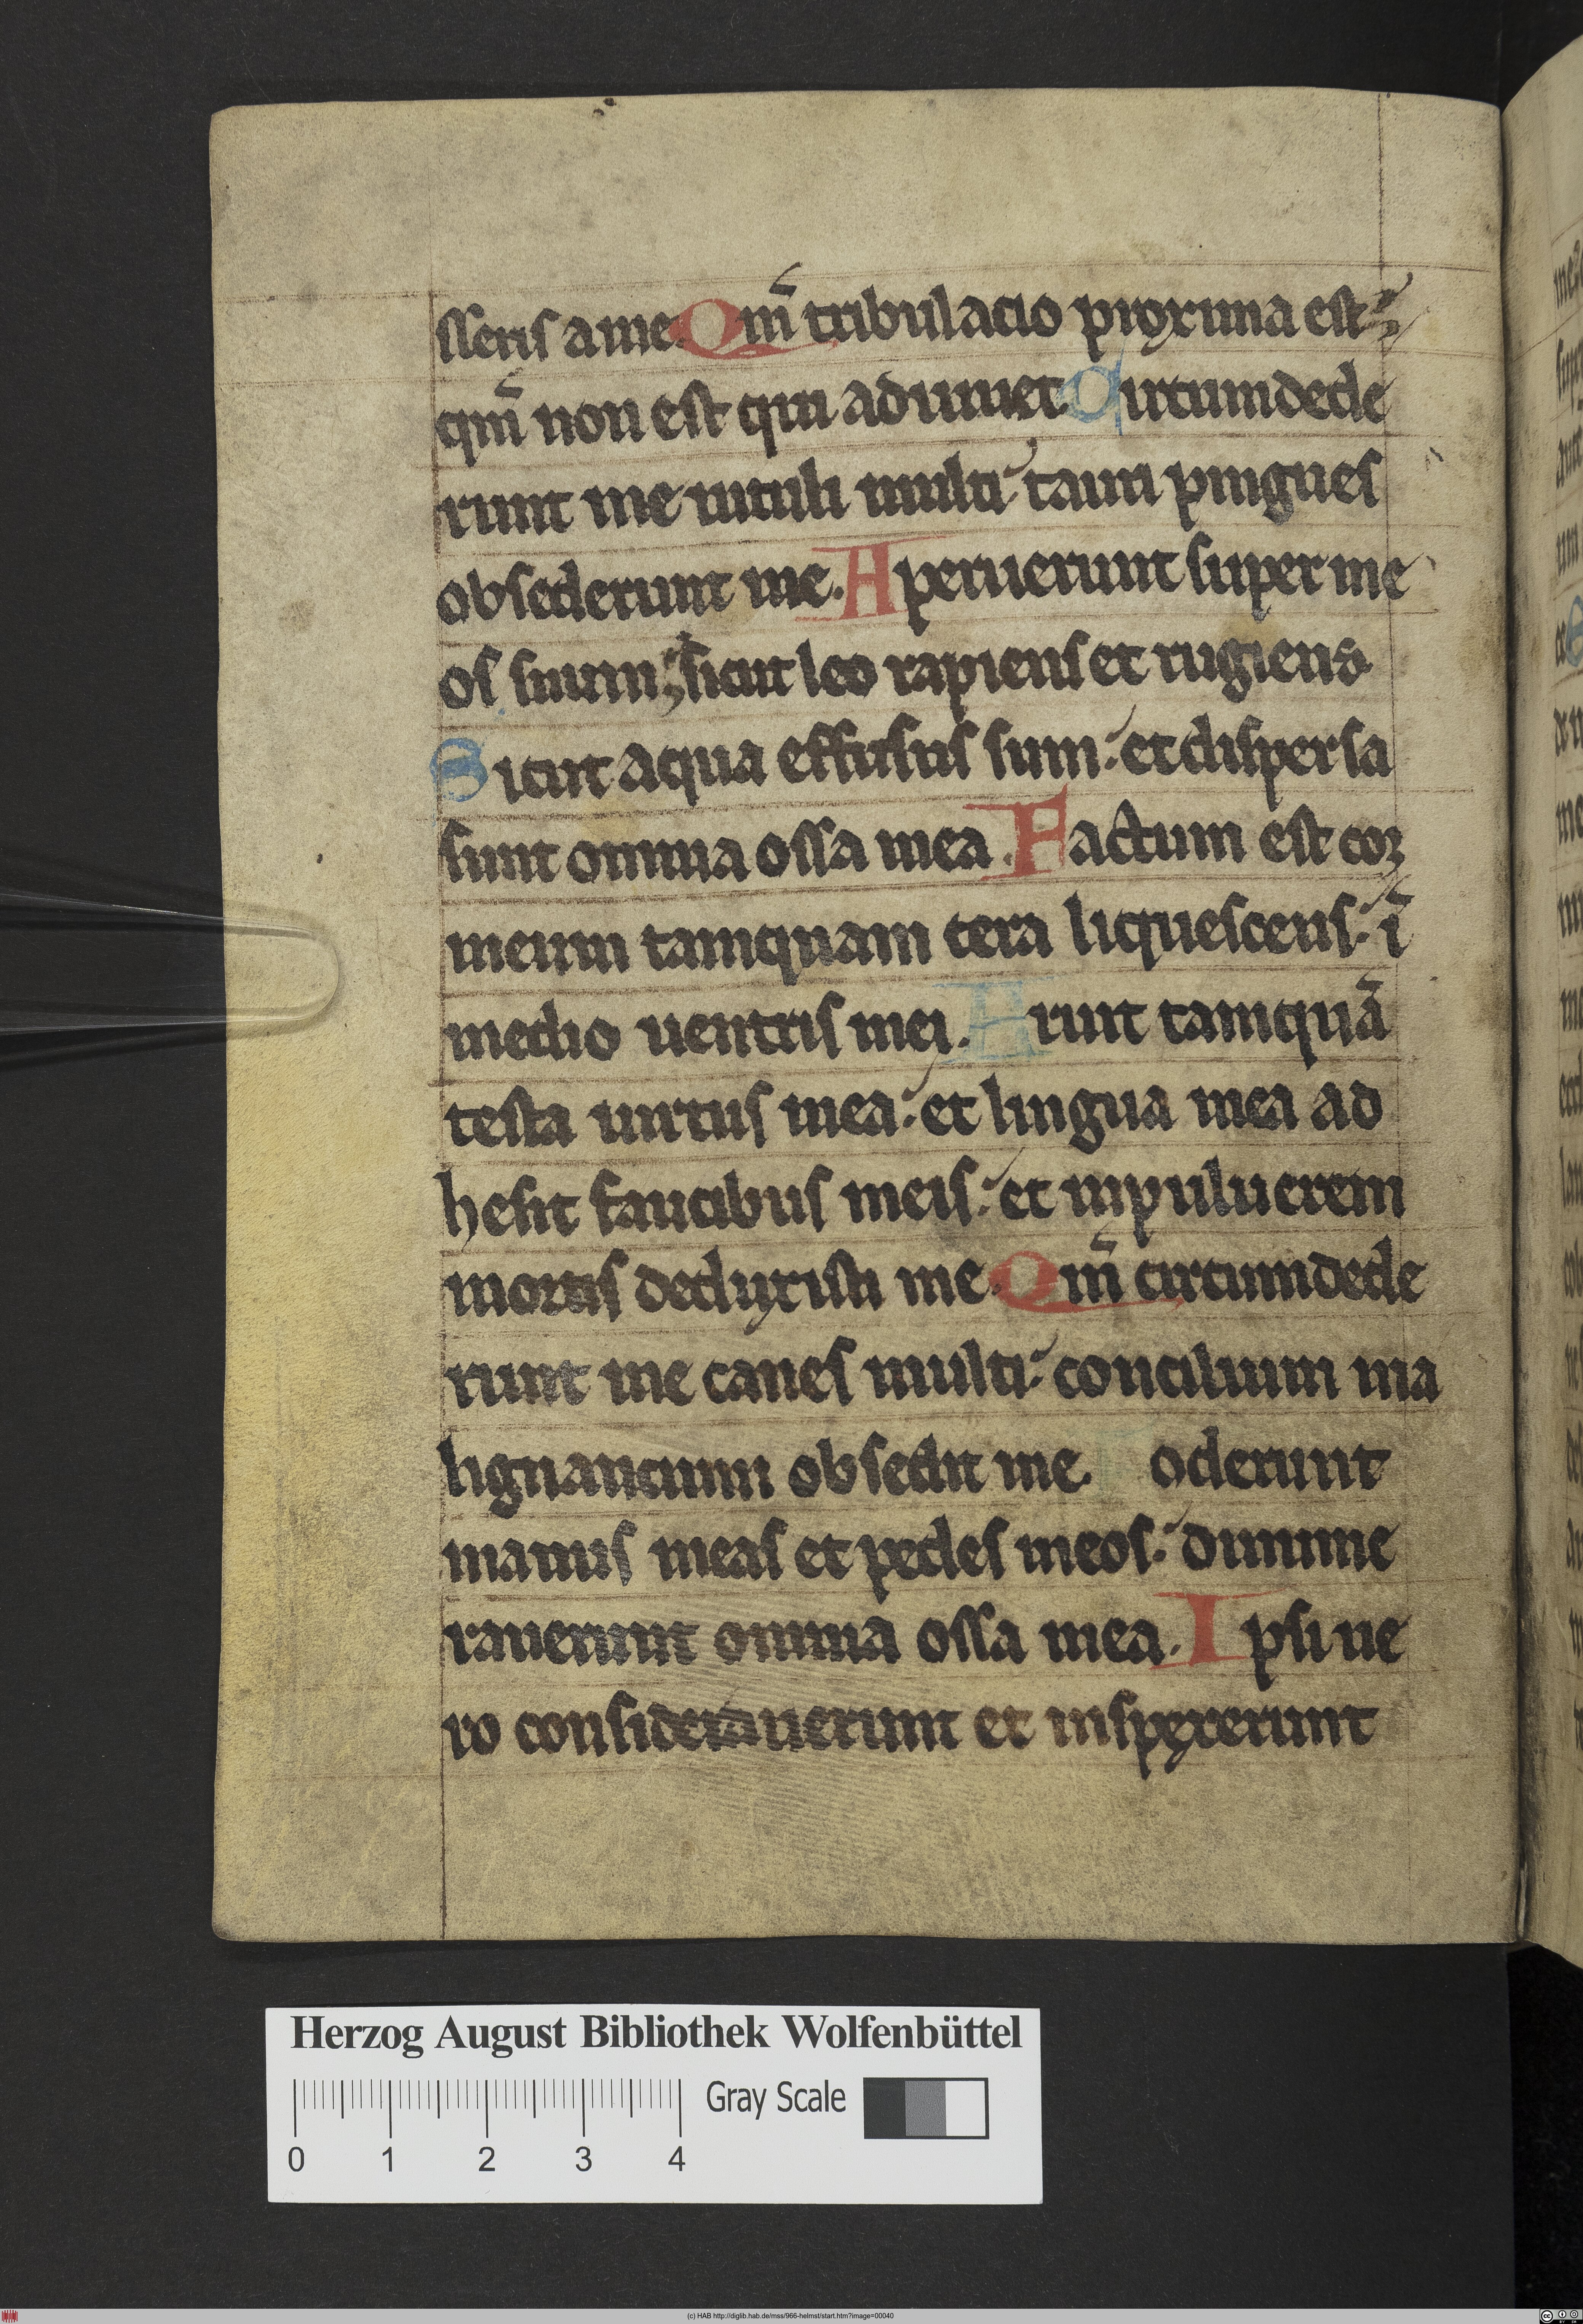 sseris a me. Qm̄ tribulacio proxima est
qm̄ non est qui adiuuet. Qircumdede
runt me uituli multi: tauri pingues
obsederunt me. Aperuerunt super me
os suum; sicut leo rapiens et rugiens
Sicut aqua effusus sum: et dispersa
sunt omnia ossa mea. Factum est cor
meum tamquam cera liquescens: ī
medio uentris mei. Aruit tamquā
testa uirtus mea: et lingua mea ad
hesit faucibus meis: et inpuluerem
mortis deduxisti me. Qm̄ circumdede
runt me canes multi: concilium ma
lignancium obsedit me. Foderunt
manus meas et pedes meos: dinume
rauerunt omnia ossa mea. Ipsi ue
ro considerauerunt et inspexerunt
Herzog August Bibliothek Wolfenbüttel
Gray Scale
0 1 2 3 4
(c) HAB http://diglib.hab.de/mss/966-helmst/start.htm?image=00040